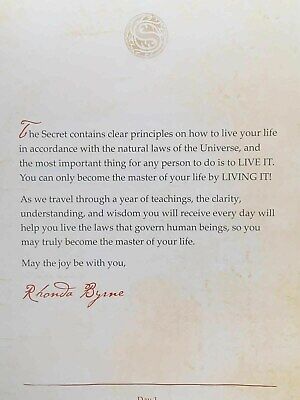 The Secret contains clear principles on how to live your life
in accordance with the natural laws of the Universe, and
the most important thing for any person to do is to LIVE IT.
You can only become the master of your life by LIVING IT!
As we travel through a year of teachings, the clarity,
understanding, and wisdom you will receive every day will
help you live the laws that govern human beings, so you
may truly become the master of your life.
May the joy be with you,
Rhonda Byrne
Day 1